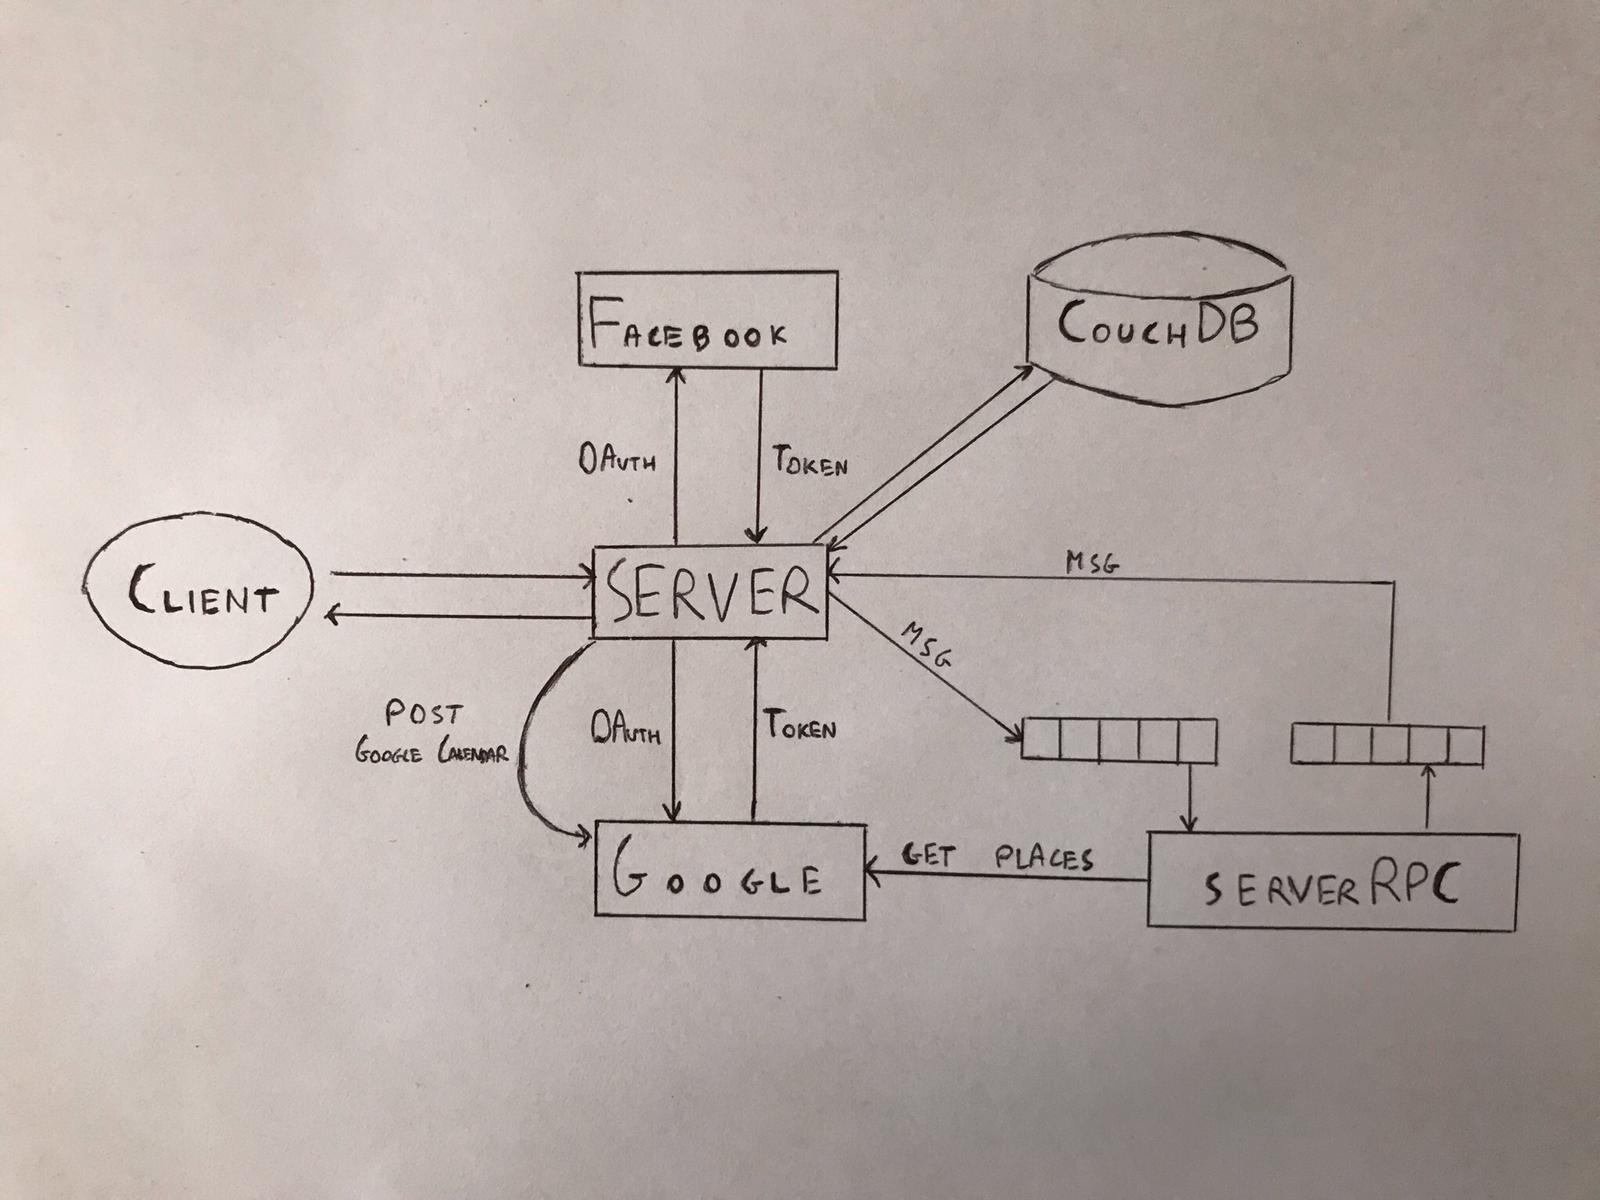 FACEBOOK
COUCHDB
OAUTH
TOKEN
CLIENT
SERVER
MSG
MSG
POST
GOOGLE CALENDAR
OAUTH
TOKEN
GOOGLE
GET PLACES
SERVERRPC